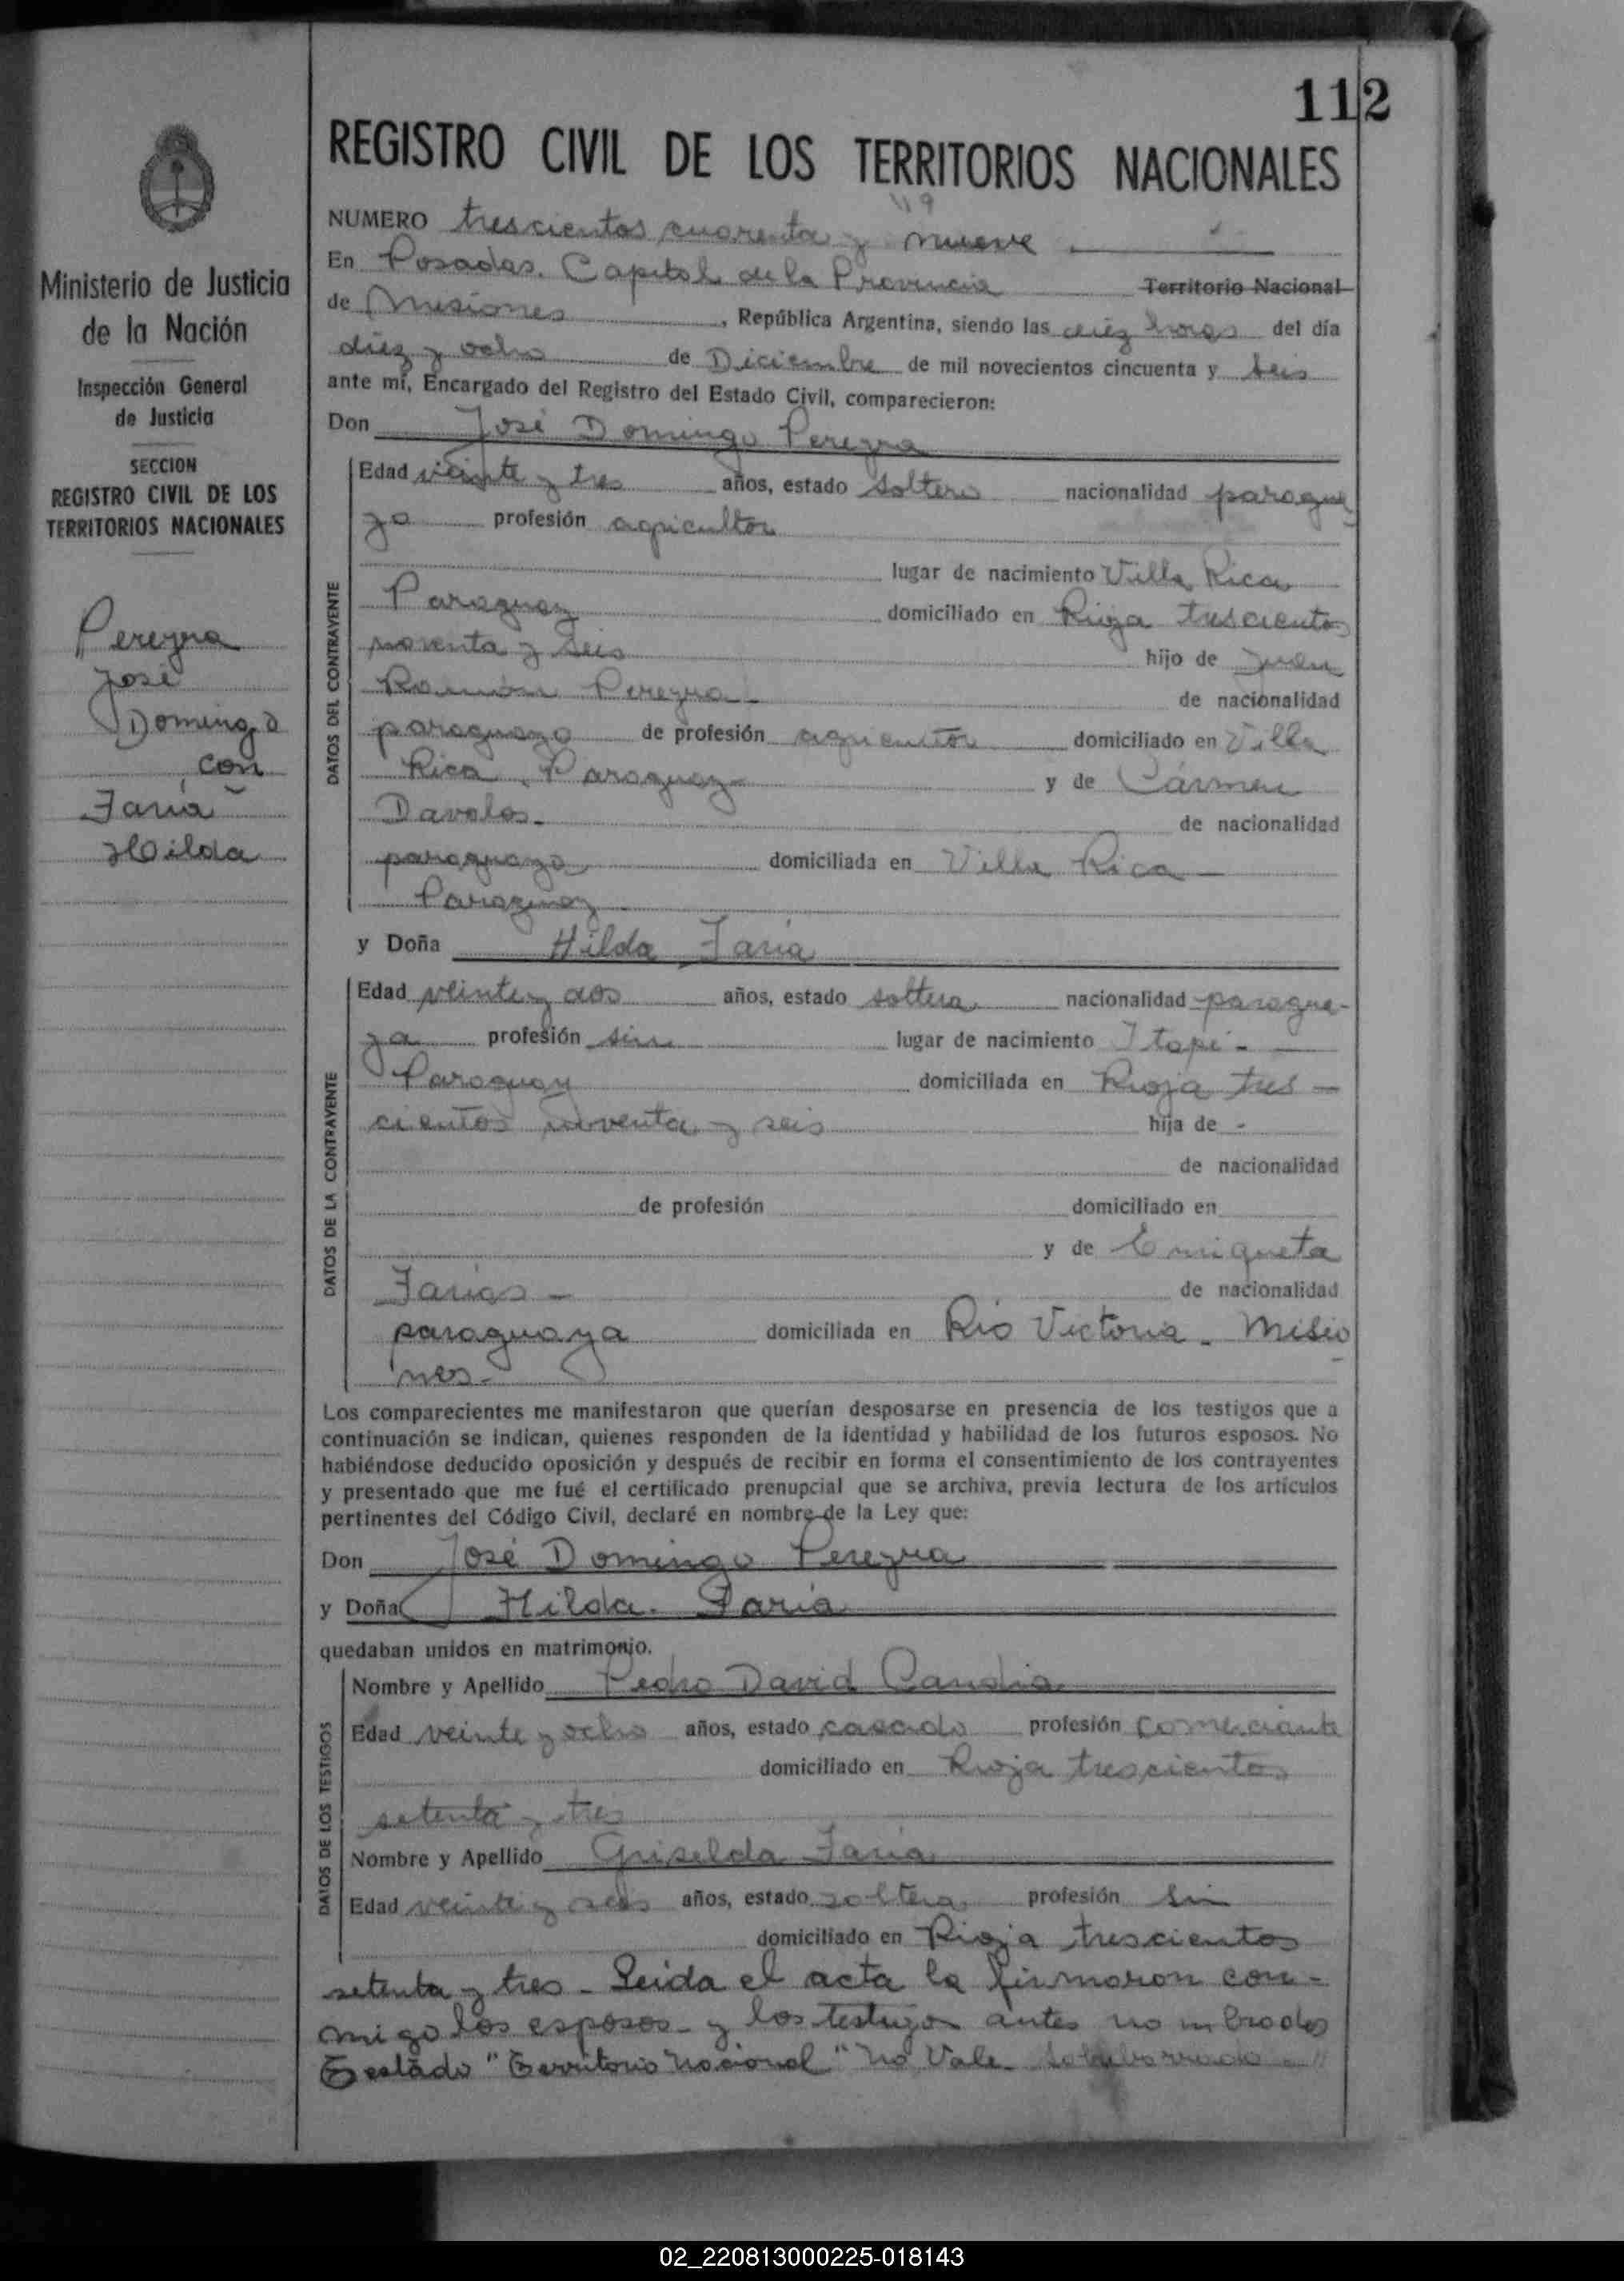 112
REGISTRO CIVIL DE LOS TERRITORIOS NACIONALES
Ministerio de Justicia
de la Nación
Inspección General
de Justicia
SECCION
REGISTRO CIVIL DE LOS
TERRITORIOS NACIONALES
Pereyra
José
Domingo
con
Faria
Hilda
NUMERO trescientos cuarenta y nueve
En Posadas. Capital de la Provincia Territorio Nacional
de Misiones, República Argentina, siendo las diez horas del día
diez y ocho de Diciembre de mil novecientos cincuenta y seis
ante mí, Encargado del Registro del Estado Civil, comparecieron:
Don José Domingo Pereyra
DATOS DEL CONTRAYENTE
Edad veinte y tres años, estado soltero nacionalidad paragua
yo profesión agricultor
lugar de nacimiento Villa Rica
Paraguay domiciliado en Rioja trescientos
noventa y seis hijo de Juan
Ramón Pereyra de nacionalidad
paraguayo de profesión agricultor domiciliado en Villa
Rica. Paraguay y de Cármen
Davalos. de nacionalidad
paraguaya domiciliada en Villa Rica
Paraguay
y Doña Hilda Faria
DATOS DE LA CONTRAYENTE
Edad veinte y dos años, estado soltera nacionalidad paragua-
ya profesión sin lugar de nacimiento Itapé -
Paraguay domiciliada en Rioja tres -
cientos noventa y seis hija de -
de nacionalidad
de profesión domiciliado en
y de Enriqueta
Farias - de nacionalidad
paraguaya domiciliada en Rio Victoria - Misio
nes -
Los comparecientes me manifestaron que querían desposarse en presencia de los testigos que a
continuación se indican, quienes responden de la identidad y habilidad de los futuros esposos. No
habiéndose deducido oposición y después de recibir en forma el consentimiento de los contrayentes
y presentado que me fué el certificado prenupcial que se archiva, previa lectura de los artículos
pertinentes del Código Civil, declaré en nombre de la Ley que:
Don José Domingo Pereyra
y Doña Hilda. Faria
quedaban unidos en matrimonio.
DATOS DE LOS TESTIGOS
Nombre y Apellido Pedro David Candia
Edad veinte y ocho años, estado casado profesión comerciante
domiciliado en Rioja trescientos
setenta y tres
Nombre y Apellido Griselda Faria
Edad veinte y seis años, estado soltera profesión sin
domiciliado en Rioja trescientos
setenta y tres - Leida el acta la firmaron con-
migo los esposos - y los testigos antes nombrados
Testado "Territorio Nacional" no Vale
02_220813000225-018143